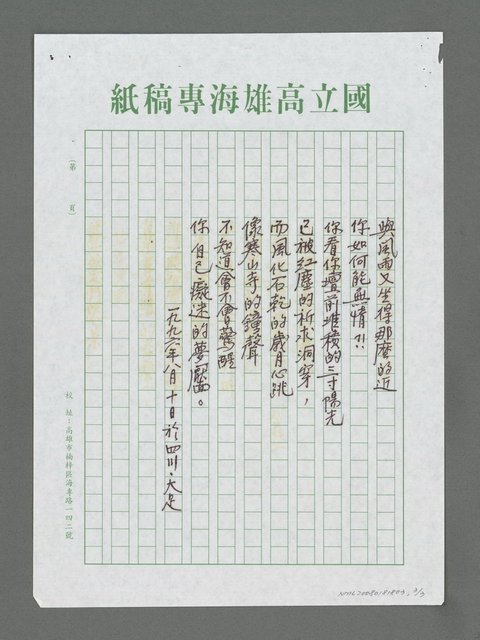 國立高雄海專稿紙
(第 頁)
與風雨又坐得那麼的近
你如何能無情?!
你看你壇前堆積的三寸陽光
已被紅塵的祈求洞穿,
而風化石乾的歲月心跳
像寒山寺的鐘聲
不知道會不會驚醒
你自己癡迷的夢魘。
一九九六年八月十日於四川.大足
校址:高雄市楠梓區海專路一四二號
NML20080181803, 3/3